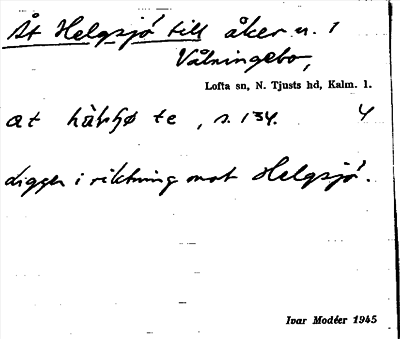 Åt Helgsjö till åker n. 1
Vålningebo,
Lofta sn, N. Tjusts hd, Kalm. l.
at te, s. 134. 4
ligger i riktning mot Helgsjö.
Ivar Modéer 1945